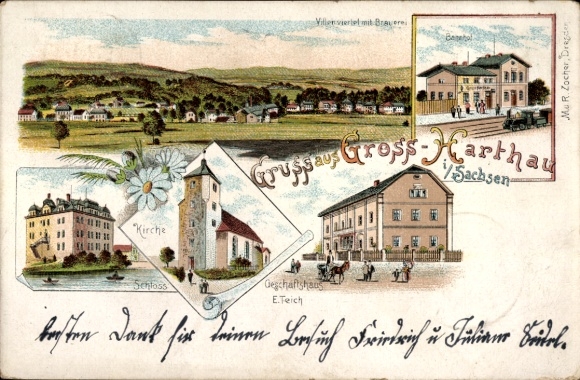 Villenviertel mit Brauerei
Bahnhof
M. & R. Zocher, Dresden
Gruss aus Gross-Harthau
i/Sachsen
Kirche
Schloss
Geschäftshaus
E. Teich
besten Dank für deinen Besuch Friedrich u Juliane